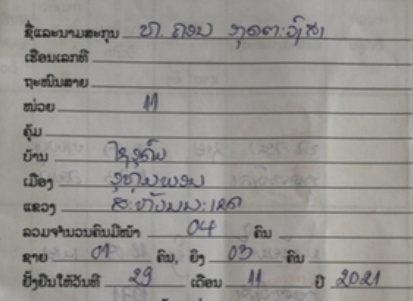 ຊື່ແລະນາມສະກຸນ ທ້າ ຄອນ
ເຮືອນເລກທີ
ຖະໜົນສາຍ
ໜ່ວຍ 11
ຄຸ້ມ
ບ້ານ
ເມືອງ
ແຂວງ ສະຫວັນນະເຂດ
ລວມຈຳນວນຄົນມີໜ້າ 04 ຄົນ
ຊາຍ 01 ຄົນ, ຍິງ 03 ຄົນ
ຢັ້ງຢືນໃຫ້ວັນທີ 29 ເດືອນ 11 ປີ 2021